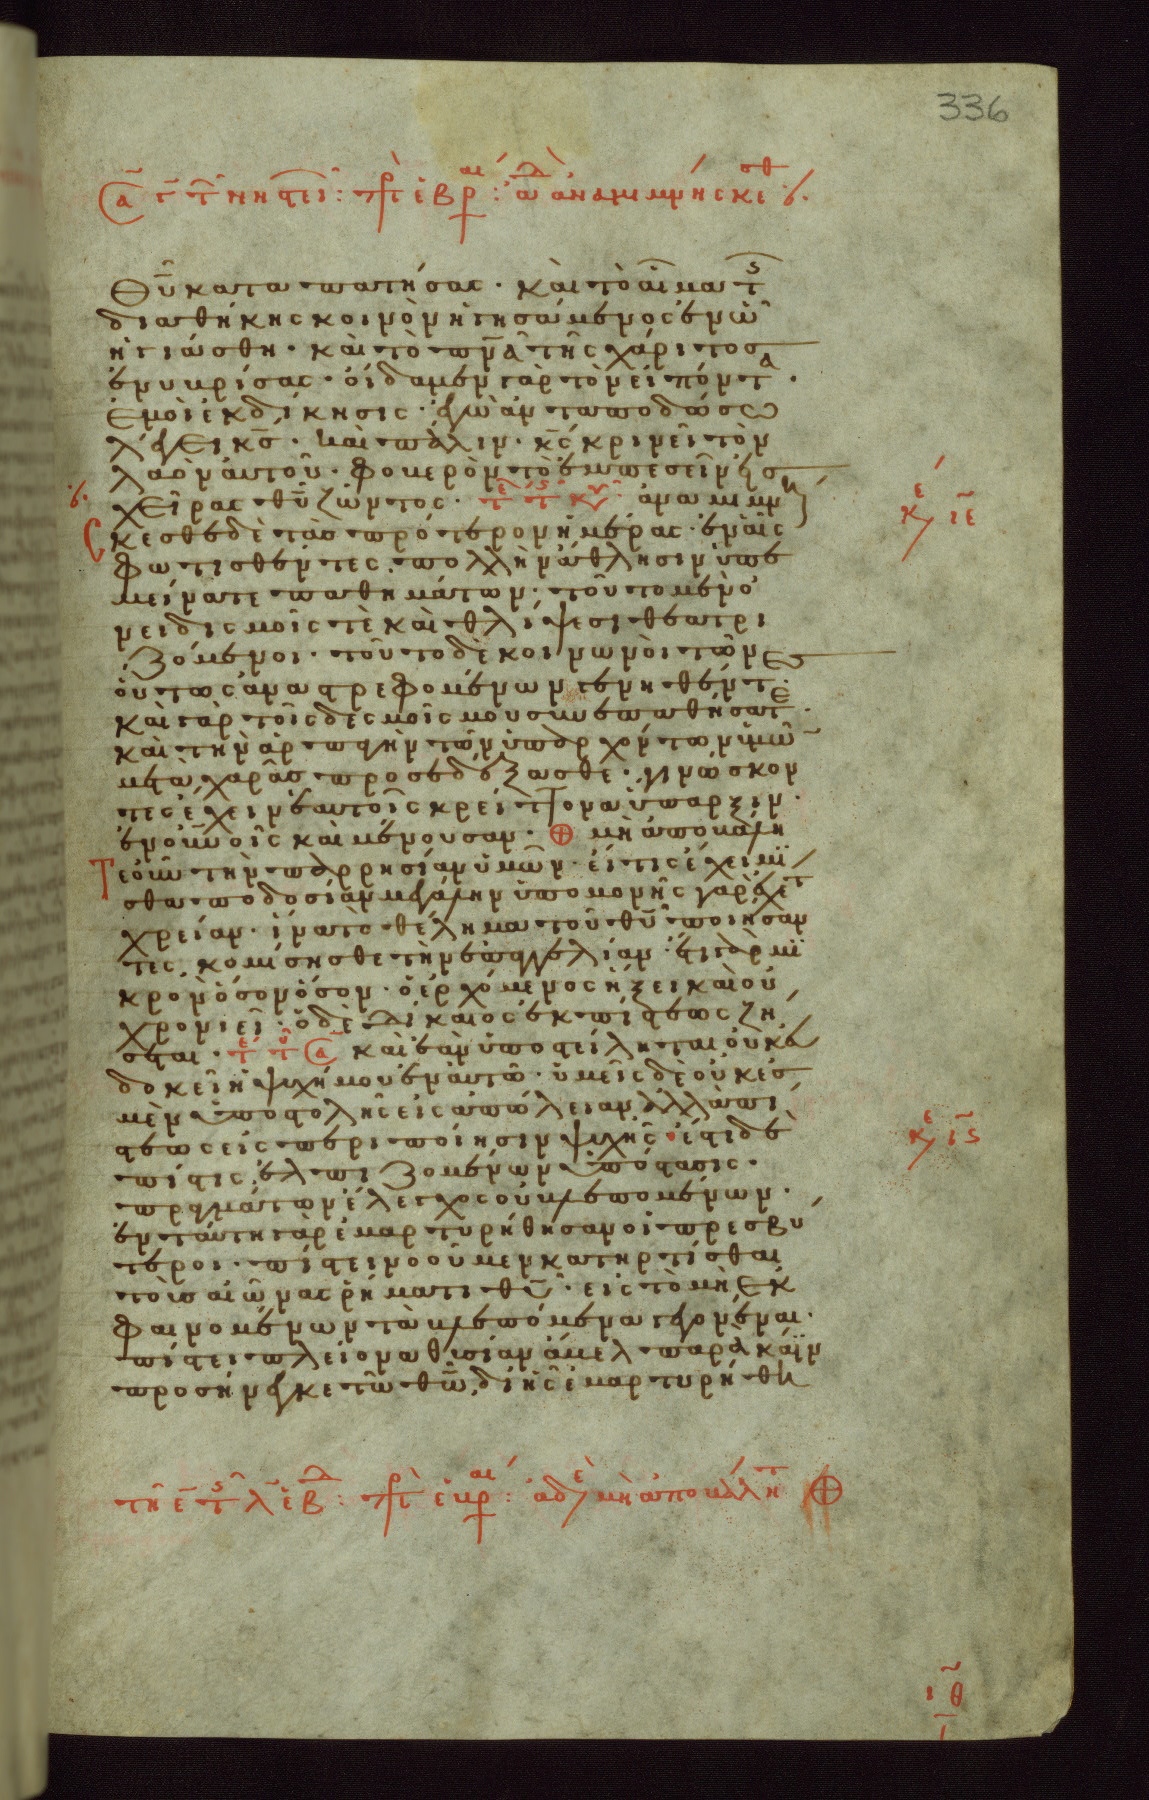 336
θυ καταπατήσας · καὶ τὸ αἷμα τ
διαθήκης κοινὸν ἡγησάμενος ἐν ὧ
ἡγιάσθη · καὶ τὸ πνα τῆς χάριτος
ἐνυβρίσας · οἴδαμεν γὰρ τὸν εἰπόντα ·
ἐμοὶ ἐκδίκησις · ἐγὼ ἀνταποδώσω
λέγει κς · καὶ πάλιν · κς κρινεῖ τὸν
λαὸν αὐτοῦ · φοβερὸν τὸ ἐμπεσεῖν εἰς
χεῖρας θυ ζῶντος · ἀναμιμνή
κε ιε
σκεσθε δὲ τὰς πρότερον ἡμέρας · ἐν αἷς
φωτισθέντες · πολλὴν ἄθλησιν ὑπε
μείνατε παθημάτων · τοῦτο μὲν ὀ
νειδισμοῖς τὲ καὶ θλίψεσι θεατρι
ζόμενοι · τοῦτο δὲ κοινωνοὶ τῶν
οὕτως ἀναστρεφομένων γενηθέντες ·
καὶ γὰρ τοῖς δεσμοῖς μου συνεπαθήσατε ·
καὶ τὴν ἁρπαγὴν τῶν ὑπαρχόντων ὑμῶ
μετὰ χαρᾶς προσεδέξασθε · γινώσκον
τες ἔχειν ἑαυτοῖς κρείττονα ὕπαρξιν ·
ἐν οὐνοῖς καὶ μένουσαν · ⊕ μὴ ἀποβάλη
τε οὖν τὴν παρρησίαν ὑμῶν · ἥτις ἔχει μι
σθαποδοσίαν μεγάλην ὑπομονῆς γὰρ ἔχετε
χρείαν · ἵνα τὸ θέλημα τοῦ θυ ποιήσαν
τες, κομίσησθε τὴν ἐπαγγελίαν · ἔτι γὰρ μι
κρὸν ὅσον ὅσον · ὁ ἐρχόμενος ἥξει καὶ οὐ
χρονιεῖ · ὁ δὲ δίκαιος ἐκ πίστεως ζή
σεται · καὶ ἐὰν ὑποστείληται οὐκ εὐ
δοκεῖ ἡ ψυχή μου ἐν αὐτῶ · ὑμεῖς δὲ οὐκ ἐσ
μὲν ὑποστολῆς εἰς ἀπώλειαν ἀλλὰ πί
στεως εἰς περιποίησιν ψυχῆς · ἔστι δὲ
κε ις
πίστις ἐλπιζομένων ὑπόστασις ·
πραγμάτων ἔλεγχος οὐ βλεπομένων ·
ἐν ταύτη γὰρ ἐμαρτυρήθησαν οἱ πρεσβύ
τεροι · πίστει νοοῦμεν κατηρτίσθαι
τοὺς αἰῶνας ῥήματι θυ · εἰς τὸ μὴ ἐκ
φαινομένων τὰ βλεπόμενα γεγονέναι ·
πίστει πλείονα θυσίαν ἄβελ παρὰ κάϊν
προσήνεγκε τῶ θω, δι ἧς ἐμαρτυρήθη
ιθ